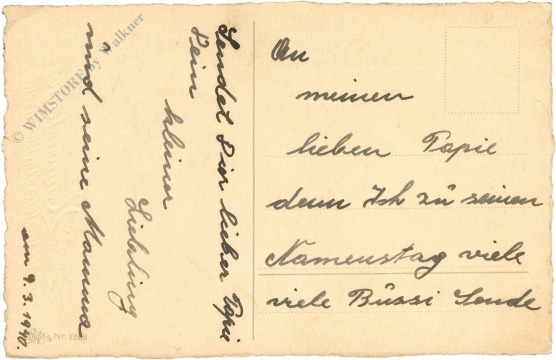 An
meinen
lieben Papie
dem Ich zu seinen
Namenstag viele
viele Bussi Sende
Sendet Dier lieber Papie
Dein
kleiner
Liebling
und seine Mamma
am 9.3.1940.
© WIMSTORE by Falkner